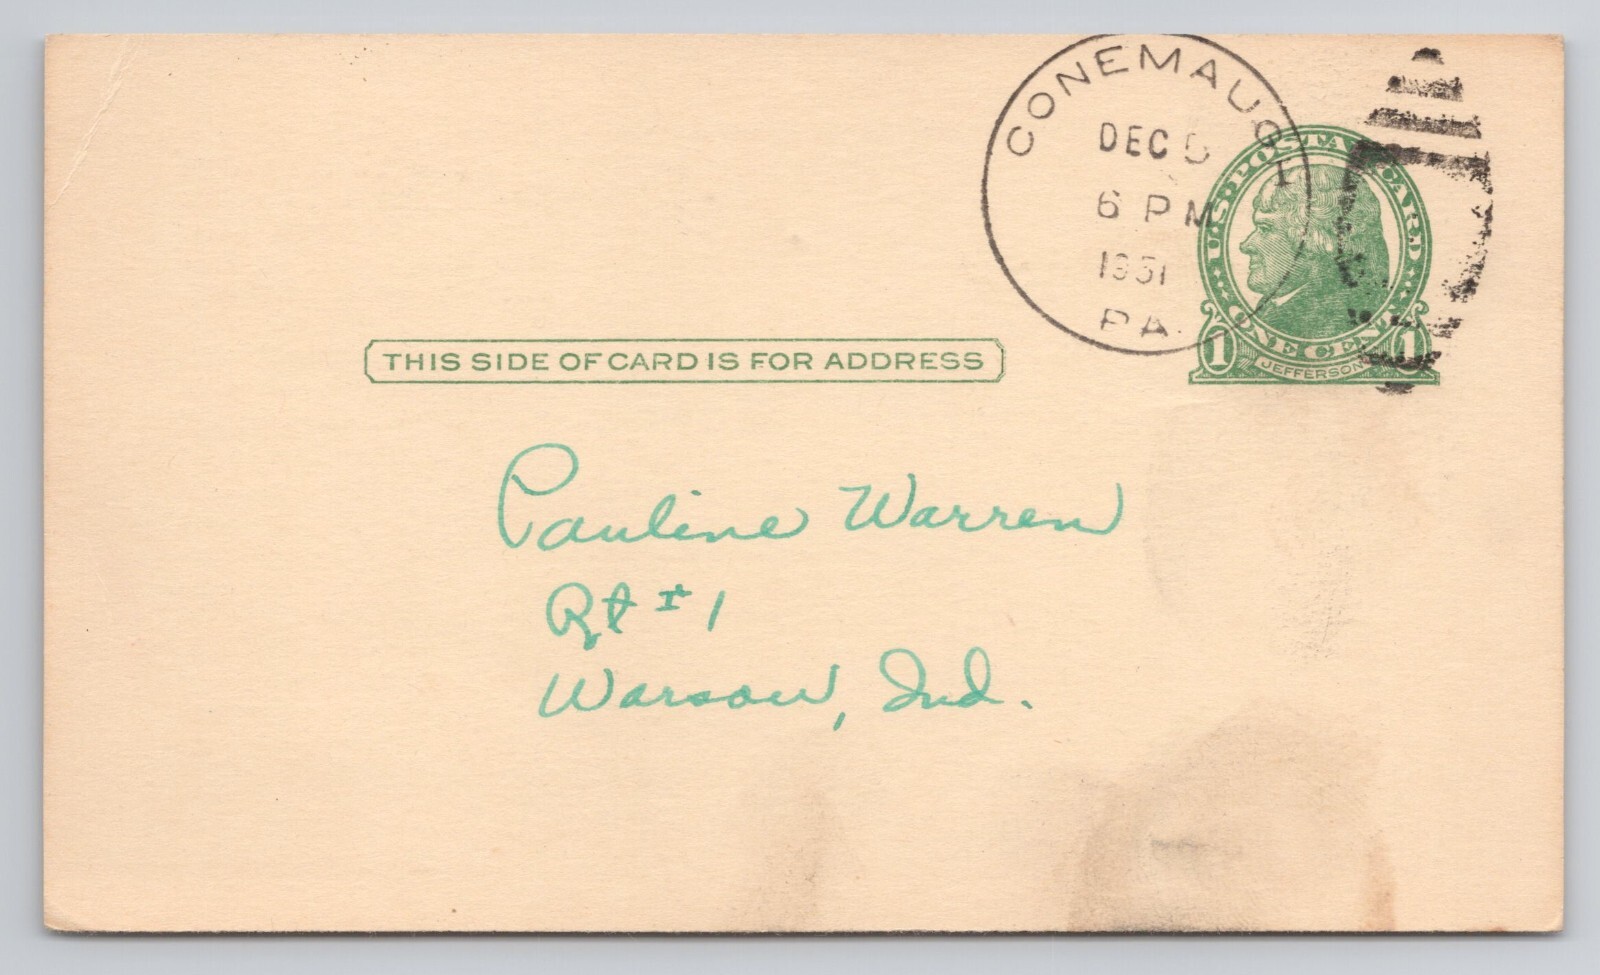 CONEMAUGH
DEC 5
6 PM
1951
PA.
U.S. POSTAL CARD
ONE CENT
1 JEFFERSON 1
THIS SIDE OF CARD IS FOR ADDRESS
Pauline Warren
Rt # 1
Warsaw, Ind.